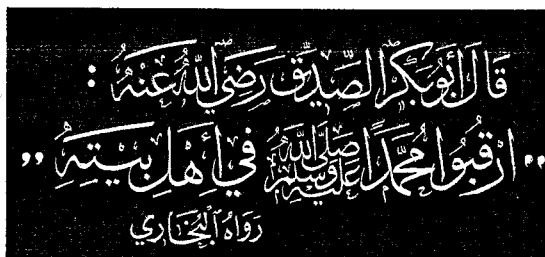 قَالَ أَبُو بَكْرٍ الصِّدِّيقُ رَضِيَ اللَّهُ عَنْهُ :
" ارْقُبُوا مُحَمَّدًا صَلَّى اللَّهُ عَلَيْهِ وَسَلَّمَ فِي أَهْلِ بَيْتِهِ "
رَوَاهُ الْبُخَارِي